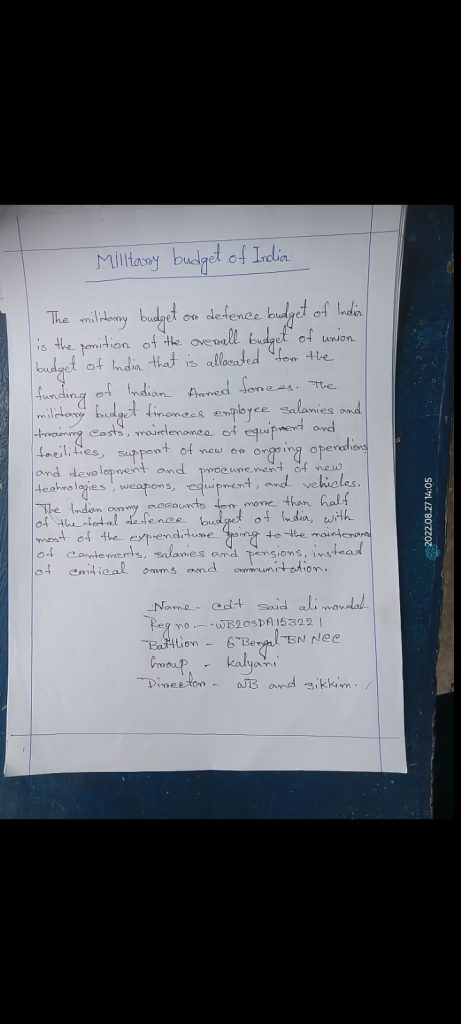 Millitary budget of India
The military budget or defence budget of India
is the porition of the overall budget of union
budget of India that is allocated for the
funding of Indian Armed forces. The
military budget finances employee salaries and
training costs, maintenance of equipment and
facilities, support of new or ongoing operations
and development and procurement of new
technologies, weapons, equipment, and vehicles.
The Indian army accounts for more than half
of the total defence budget of India, with
most of the expenditure going to the maintenance
of cantoments, salaries and pensions, instead
of critical arms and ammunitation.
Name - cdt said ali mondal
Reg no. - WB20SDA153221
Battlion - 6 Bengal BN NCC
Group - Kalyani
Director - WB and sikkim.
2022.08.27 14:05